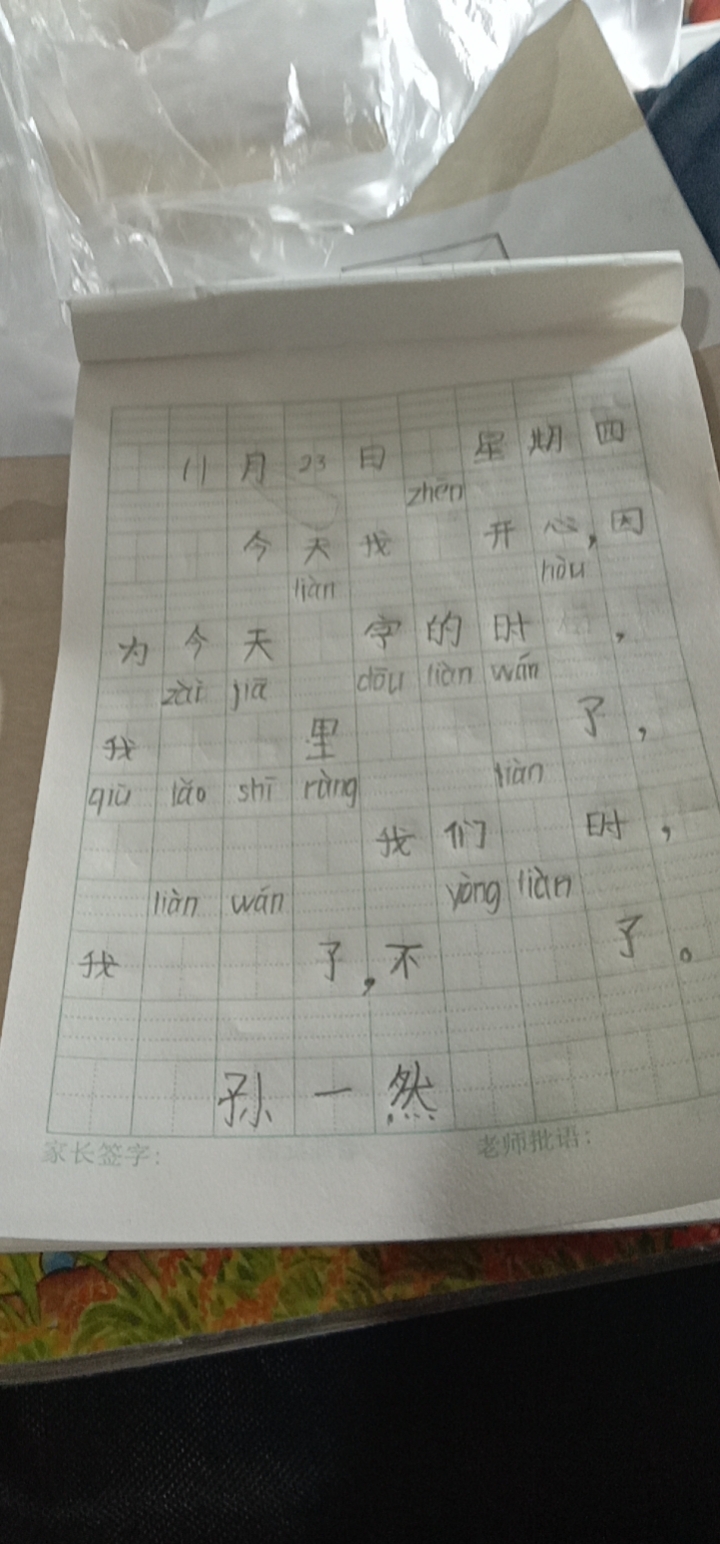 11月23日 星期四
zhēn
今天我 开心,因
liàn hòu
为今天 字的时 ,
zài jiā dōu liàn wán
我 里 了,
qiū lǎo shī ràng liàn
我们 时,
liàn wán yòng liàn
我 了,不 了。
孙一然
家长签字: 老师批语: